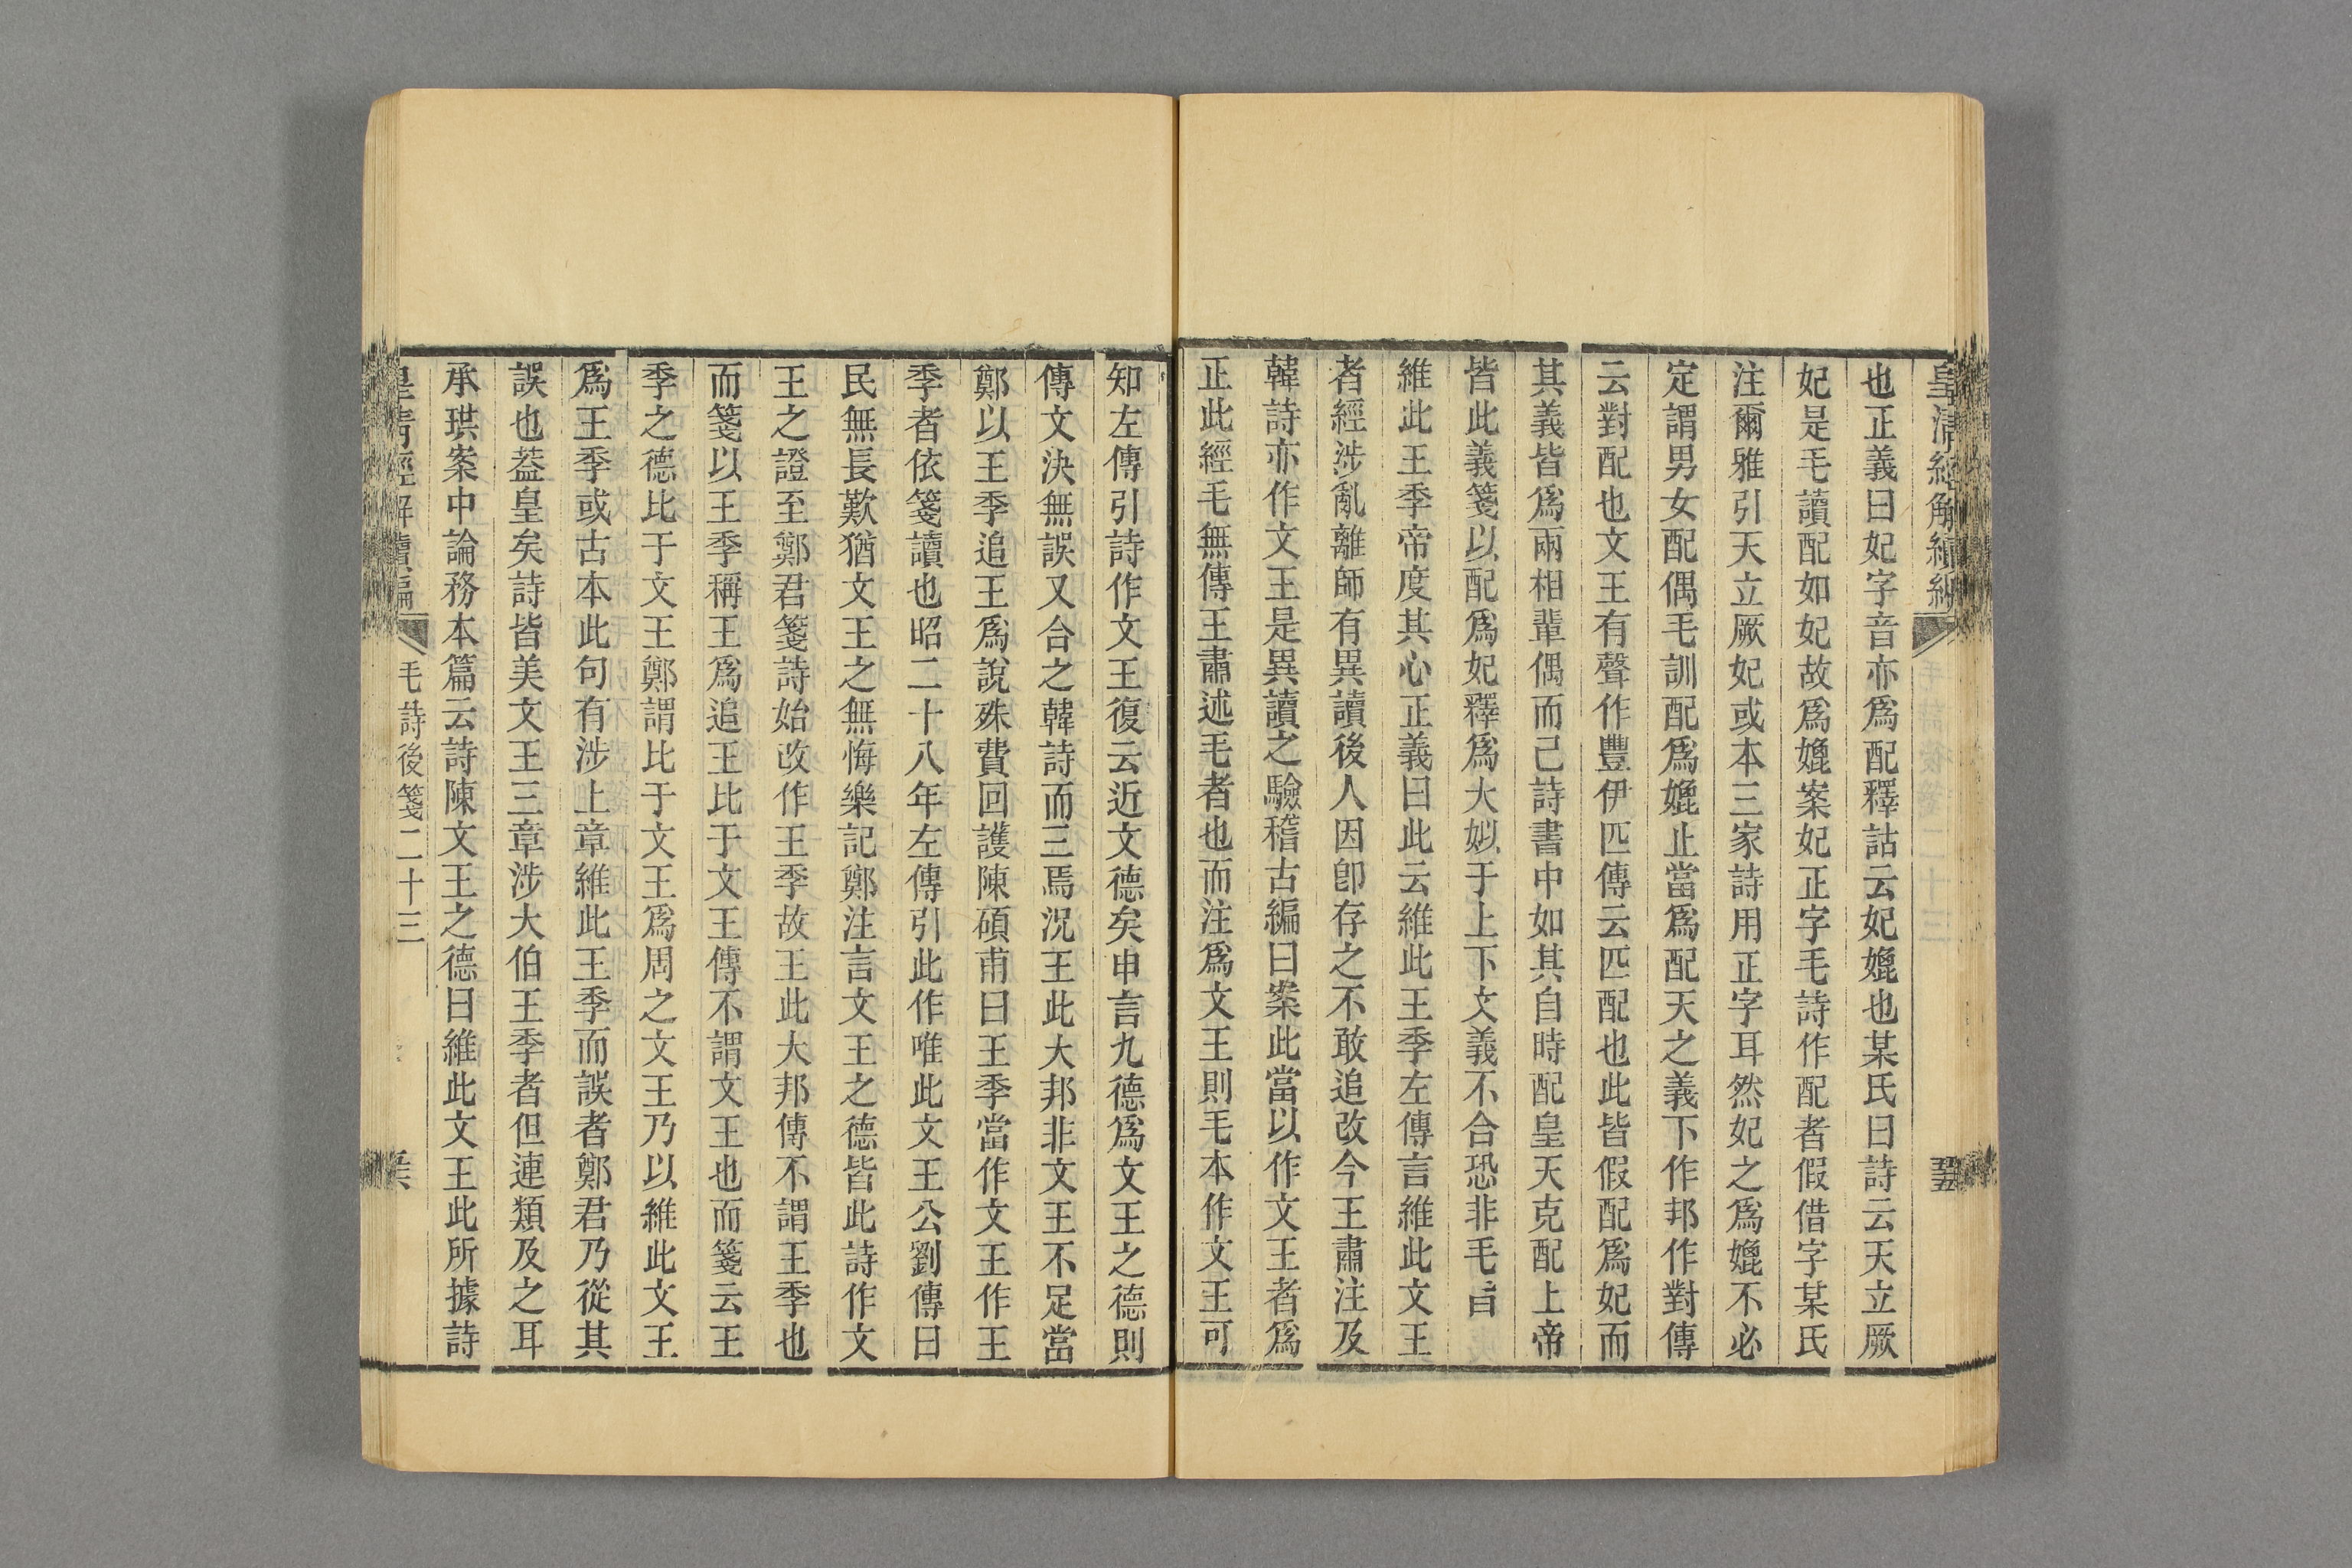 皇清經解續編
五
也正義曰妃字音亦爲配釋詁云妃媲也某氏曰詩云天立厥
妃是毛讀配如妃故爲媲案妃正字毛詩作配者假借字某氏
注爾雅引天立厥妃或本三家詩用正字耳然妃之爲媲不必
定謂男女配偶毛訓配爲媲止當爲配天之義下作邦作對傳
云對配也文王有聲作豐伊匹傳云匹配也此皆假配爲妃而
其義皆爲兩相輩偶而己詩書中如其自時配皇天克配上帝
皆此義箋以配爲妃釋爲大姒于上下文義不合恐非毛㫖
維此王季帝度其心正義曰此云維此王季左傳言維此文王
者經涉亂離師有異讀後人因卽存之不敢追改今王肅注及
韓詩亦作文王是異讀之驗稽古編曰案此當以作文王者爲
正此經毛無傳王肅述毛者也而注爲文王則毛本作文王可
知左傳引詩作文王復云近文德矣申言九德爲文王之德則
傳文決無誤又合之韓詩而三焉況王此大邦非文王不足當
鄭以王季追王爲說殊費回護陳碩甫曰王季當作文王作王
季者依箋讀也昭二十八年左傳引此作唯此文王公劉傳曰
民無長歎猶文王之無悔樂記鄭注言文王之德皆此詩作文
王之證至鄭君箋詩始改作王季故王此大邦傳不謂王季也
而箋以王季稱王爲追王比于文王傳不謂文王也而箋云王
季之德比于文王鄭謂比于文王爲周之文王乃以維此文王
爲王季或古本此句有涉上章維此王季而誤者鄭君乃從其
誤也葢皇矣詩皆美文王三章涉大伯王季者但連類及之耳
承珙案中論務本篇云詩陳文王之德曰維此文王此所據詩
皇清經解續編
毛詩後箋二十三